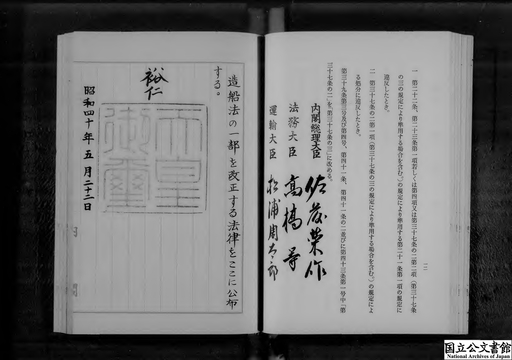 一 第二十二条、第二十三条第一項若しくは第四項又は第三十七条の二第二項(第三十七条
の三の規定により準用する場合を含む。)の規定により準用する第二十一条第一項の規定に
違反したとき。
二 第三十七条の二第一項(第三十七条の三の規定により準用する場合を含む。)の規定によ
る処分に違反したとき。
第三十九条第三号及び第四号、第四十一条、第四十一条の二並びに第四十三条第一号中「第
三十七条の二」を「第三十七条の三」に改める。
内閣総理大臣 佐藤榮作
法務大臣 高橋等
運輸大臣 松浦周太郎
造船法の一部を改正する法律をここに公布
する。
裕仁
天皇御璽
昭和四十年五月二十二日
国立公文書館
National Archives of Japan